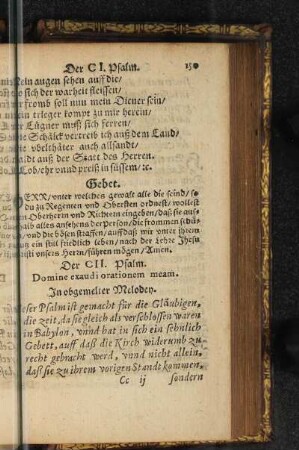 Der CI. Psalm. 150
augen sehen auff die/
sich der warheit fleissen/
fromb soll nun mein Diener sein/
mein trieger kompt zu mir herein/
Lügner muß sich ferren/
Schälck vertreib ich auß dem Land/
vbelthäter auch allsandt/
auß der Statt des Herren.
Lob/ehr vnnd preiß in süssem/ ꝛc.
Gebet.
HERR/vnter welches gewalt alle die seind/so
du zu Regenten vnd Obersten ordnest/wöllest
Oberherrn vnd Richtern eingeben/daß sie auß-
halb alles ansehens der person/die frommen schü-
vnd die bösen straffen/auff daß wir vnter ihrem
ein still friedlich leben/nach der Lehre Jhesu
vnsers Herrn/führen mögen/Amen.
Der CII. Psalm.
Domine exaudi orationem meam.
In obgemelter Melodey.
Dieser Psalm ist gemacht für die Gläubigen,
die zeit, da sie gleich als verschlossen waren
in Babylon, vnnd hat in sich ein sehnlich
Gebett, auff daß die Kirch widerumb zu
recht gebracht werd, vnnd nicht allein,
daß sie zu ihrem vorigen Stande kommen,
Cc ij sondern